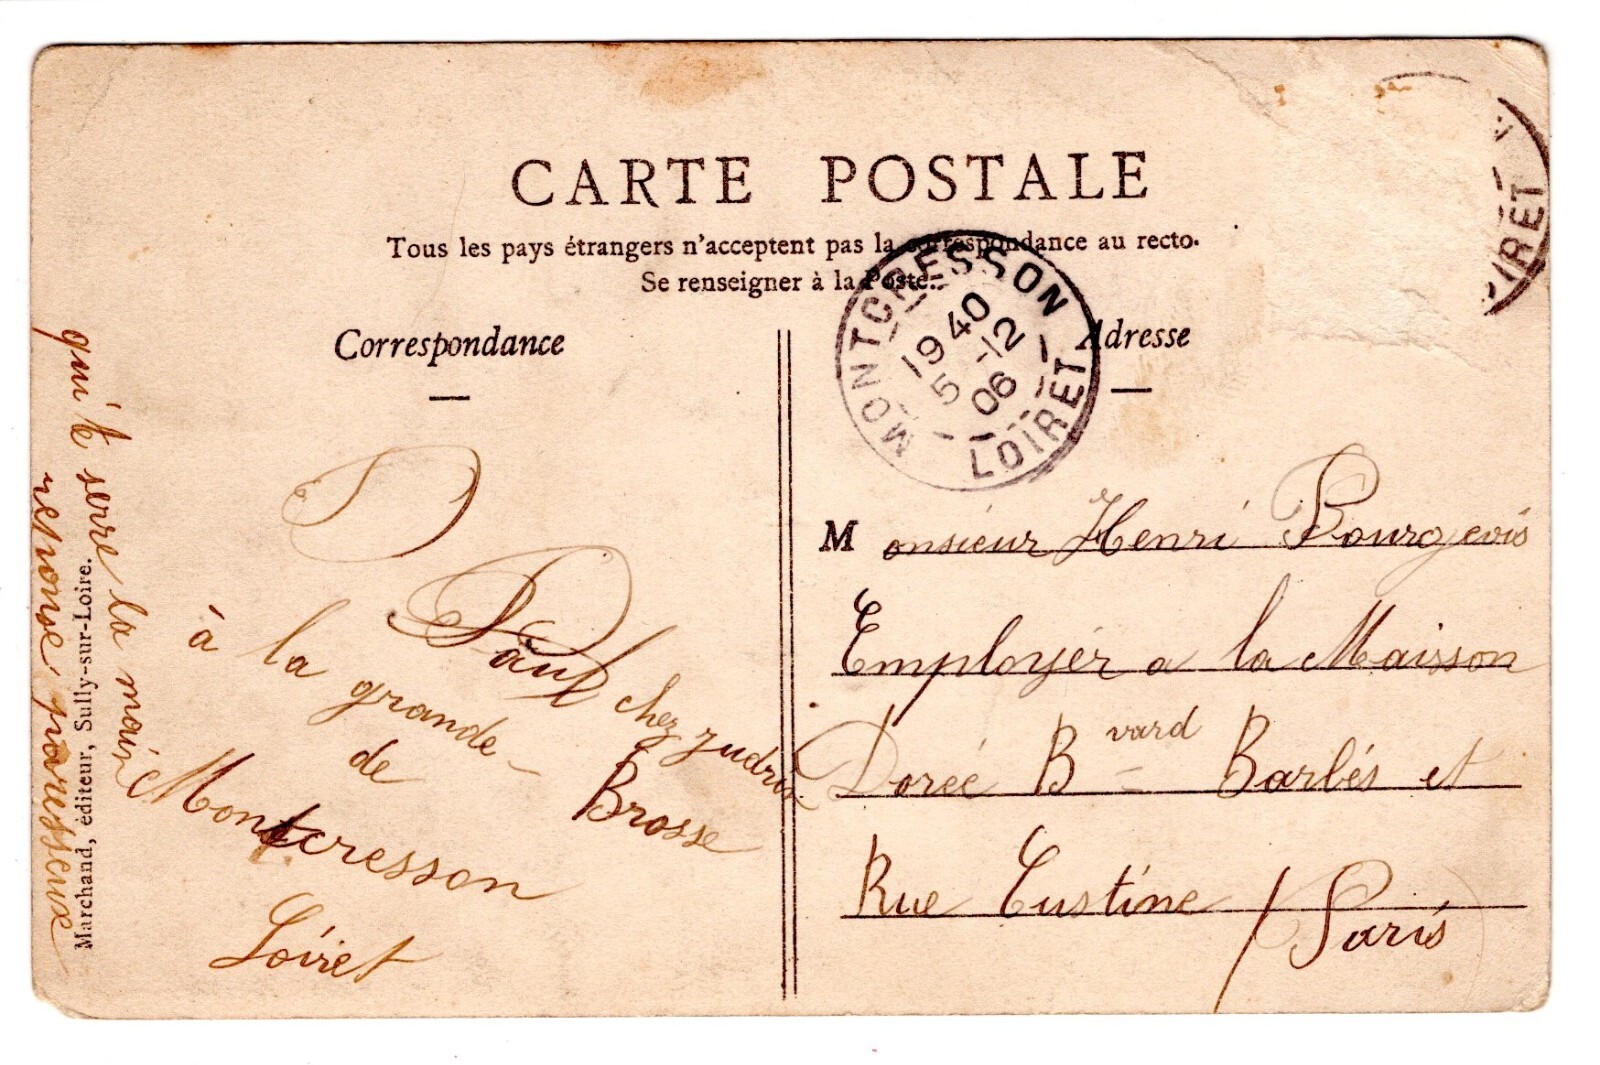 CARTE POSTALE
Tous les pays étrangers n'acceptent pas la correspondance au recto.
Se renseigner à la Poste.
Correspondance
Adresse
MONTCRESSON
19 40
5 -12
06
LOIRET
LOIRET
Monsieur Henri Bourgeois
Employér a la Maisson
Dorée Bvard Barbés et
Rue Custine / Paris
Paul chez
à la grande Brosse
de
Montcresson
Loiret
qui te serre la main
reponse paresseux
Marchand, éditeur, Sully-sur-Loire.